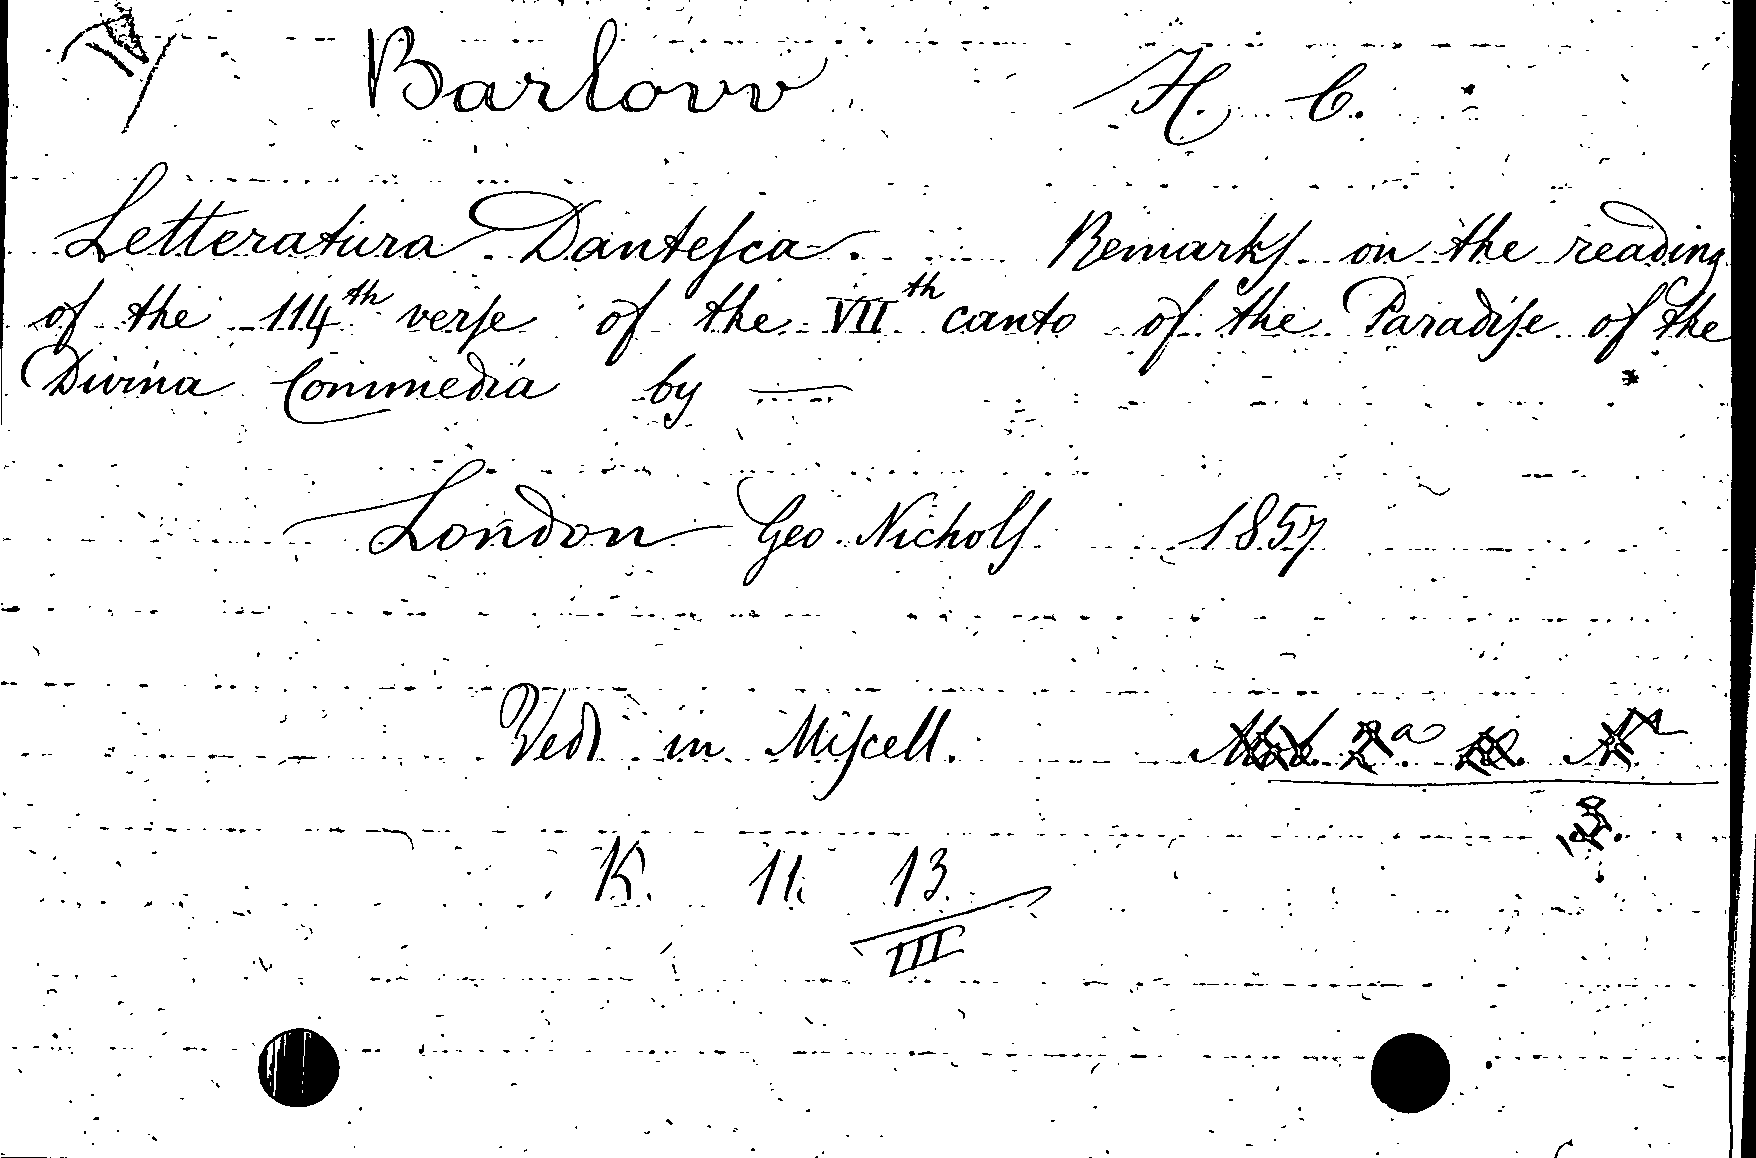 IV
Barlow H. C.
Letteratura Dantesca. Remarks on the reading
of the 114th verse of the VIIth canto of the Paradise of the
Divina Commedia by —
London Geo. Nichols 1857
Vedi in Miscell.
K. 11. 13
III